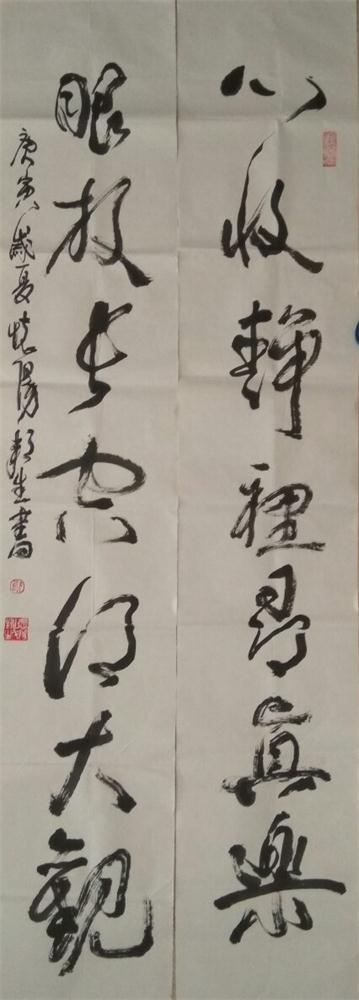 心收静裡尋真樂
眼放长空得大觀
庚寅歲夏
生書